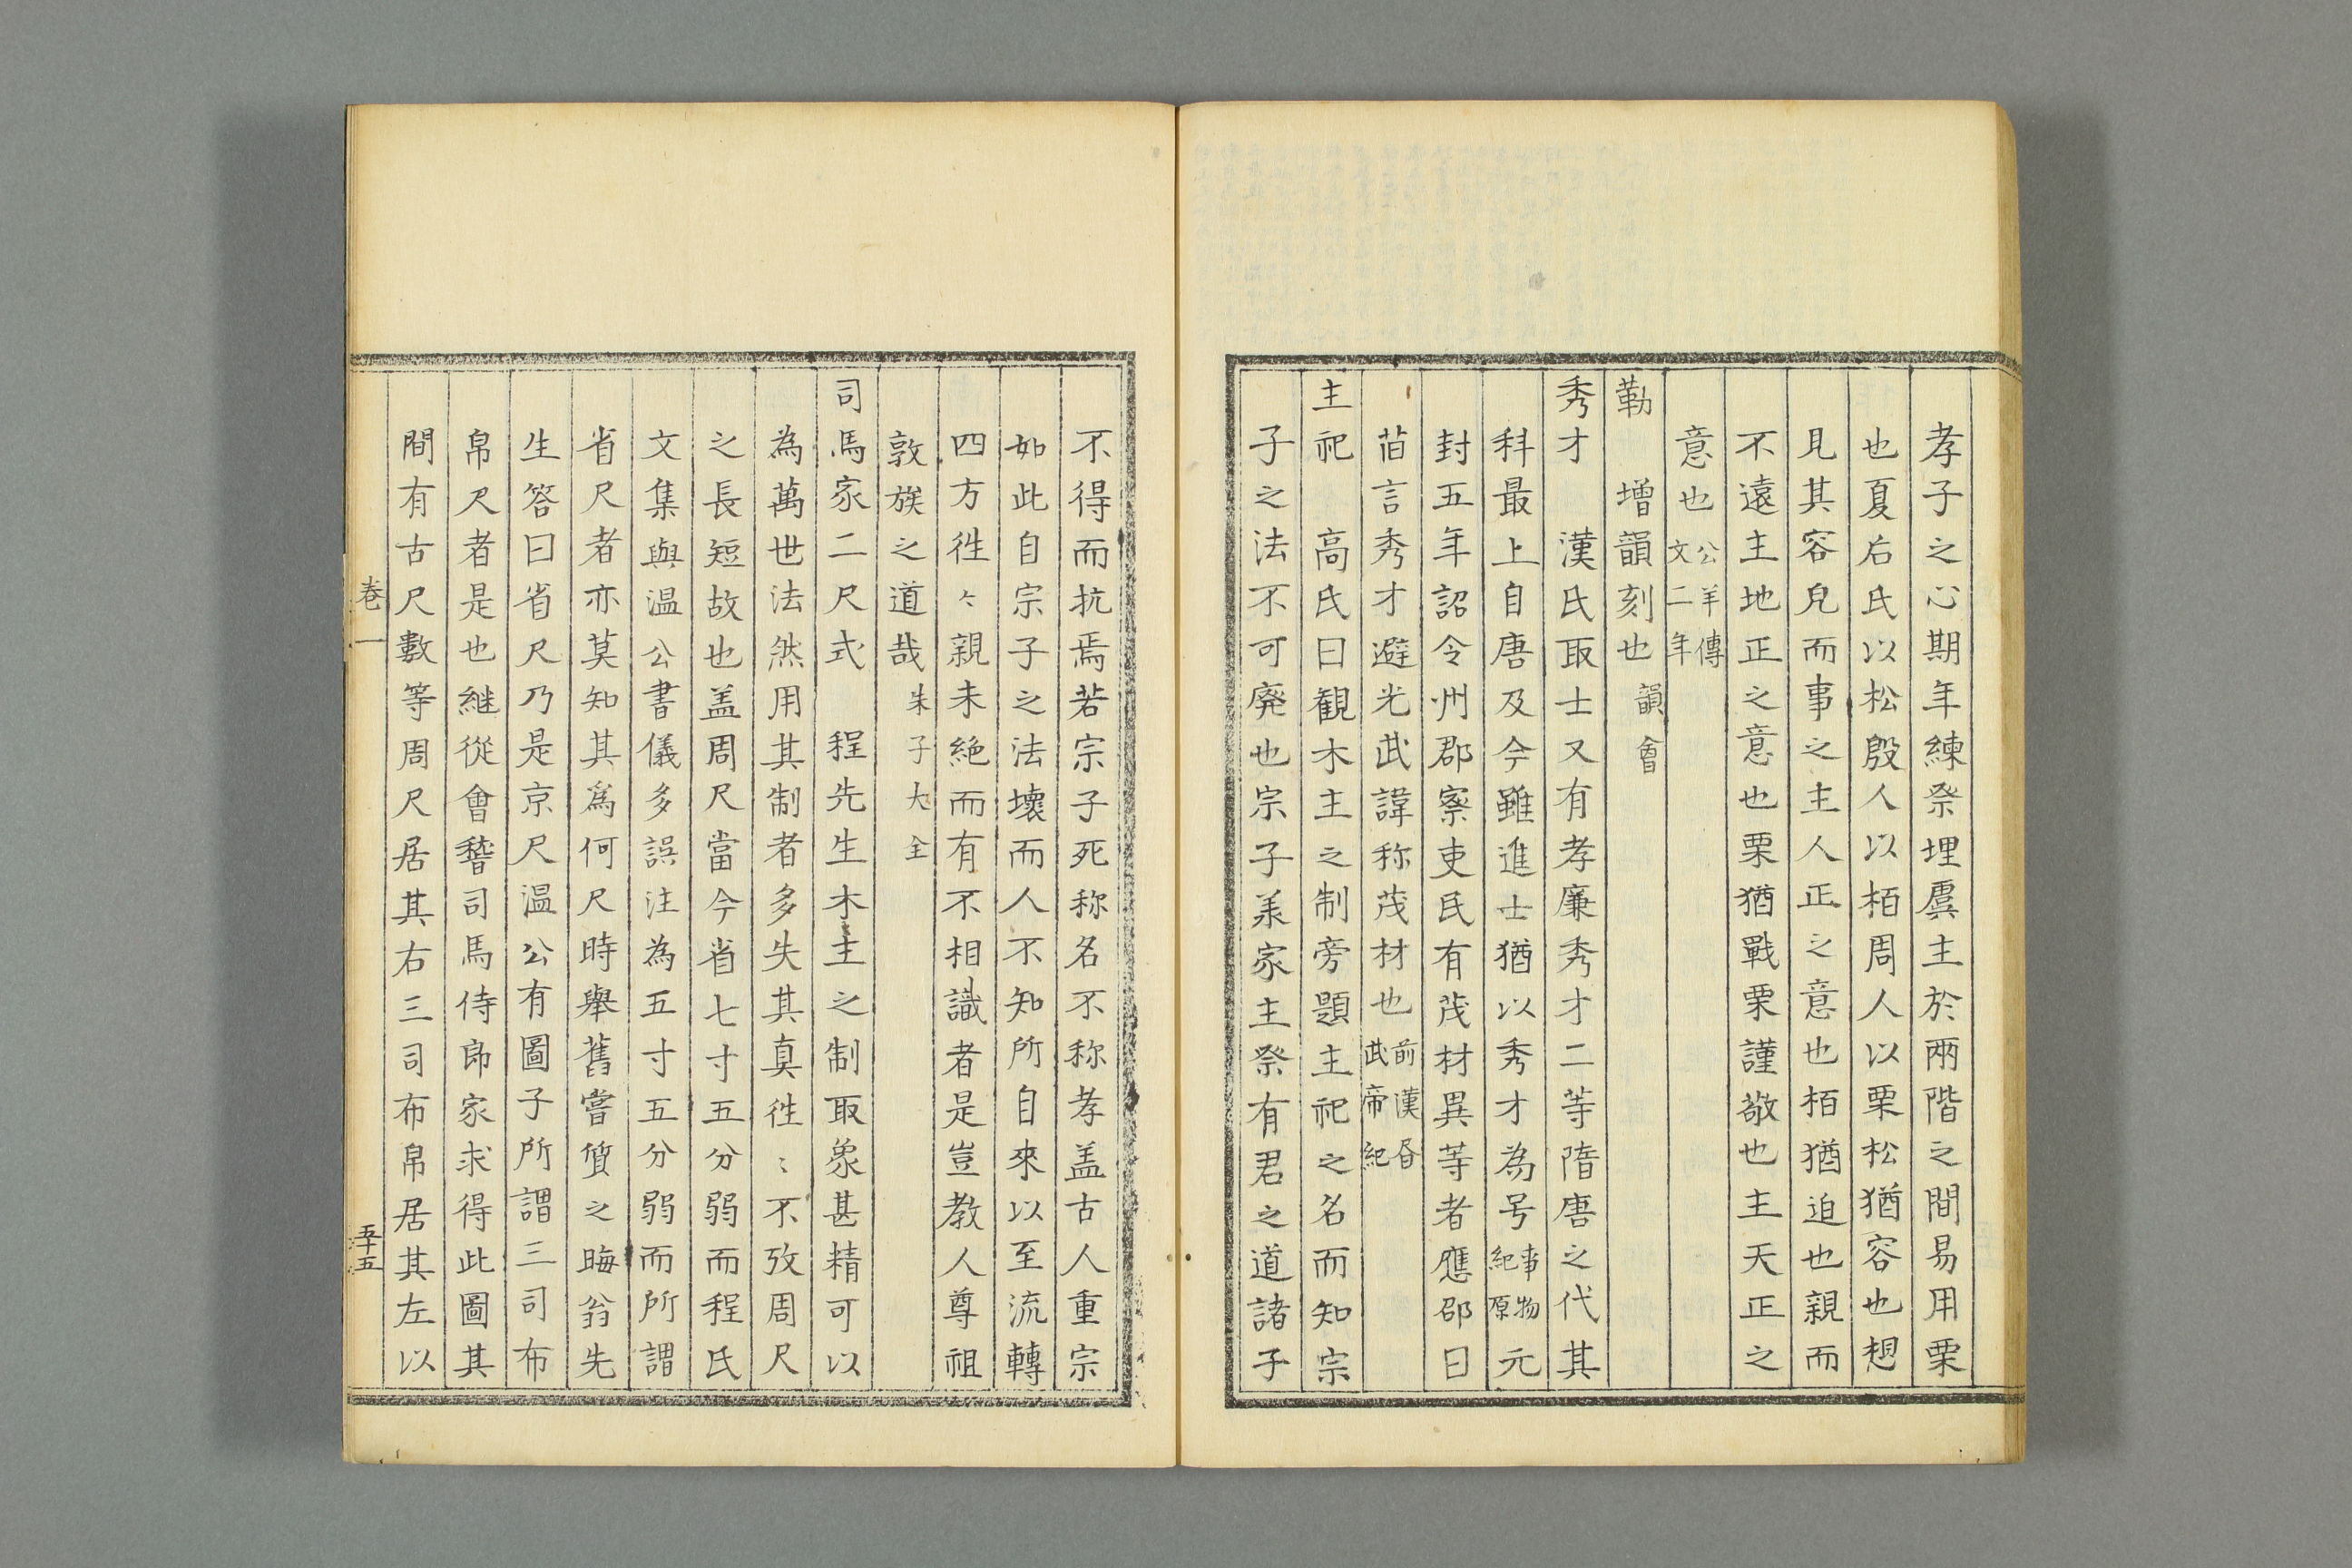 孝子之心期年練祭埋虞主於兩階之間易用栗
也夏后氏以松殷人以栢周人以栗松猶容也想
見其容皃而事之主人正之意也栢猶迫也親而
不遠主地正之意也栗猶戰栗謹敬也主天正之
意也公羊傳文二年
勒　增韻刻也韻會
秀才　漢氏取士又有孝廉秀才二等隋唐之代其
科最上自唐及今雖進士猶以秀才為号事物紀原元
封五年詔令州郡察吏民有茂材異等者應邵曰
𦾔言秀才避光武諱称茂材也前漢書武帝紀
主祀　高氏曰観木主之制旁題主祀之名而知宗
子之法不可廃也宗子羕家主祭有君之道諸子
不得而抗焉若宗子死称名不称孝盖古人重宗
如此自宗子之法壞而人不知所自來以至流轉
四方徃〻親未絶而有不相識者是豈教人尊祖
敦族之道哉朱子大全
司馬家二尺式　程先生木主之制取象甚精可以
為萬世法然用其制者多失其真徃〻不攷周尺
之長短故也盖周尺當今省七寸五分弱而程氏
文集與温公書儀多誤注為五寸五分弱而所謂
省尺者亦莫知其爲何尺時舉舊嘗質之晦翁先
生答曰省尺乃是京尺温公有圖子所謂三司布
帛尺者是也継從會稽司馬侍郎家求得此圖其
間有古尺數等周尺居其右三司布帛居其左以
卷一
五十五